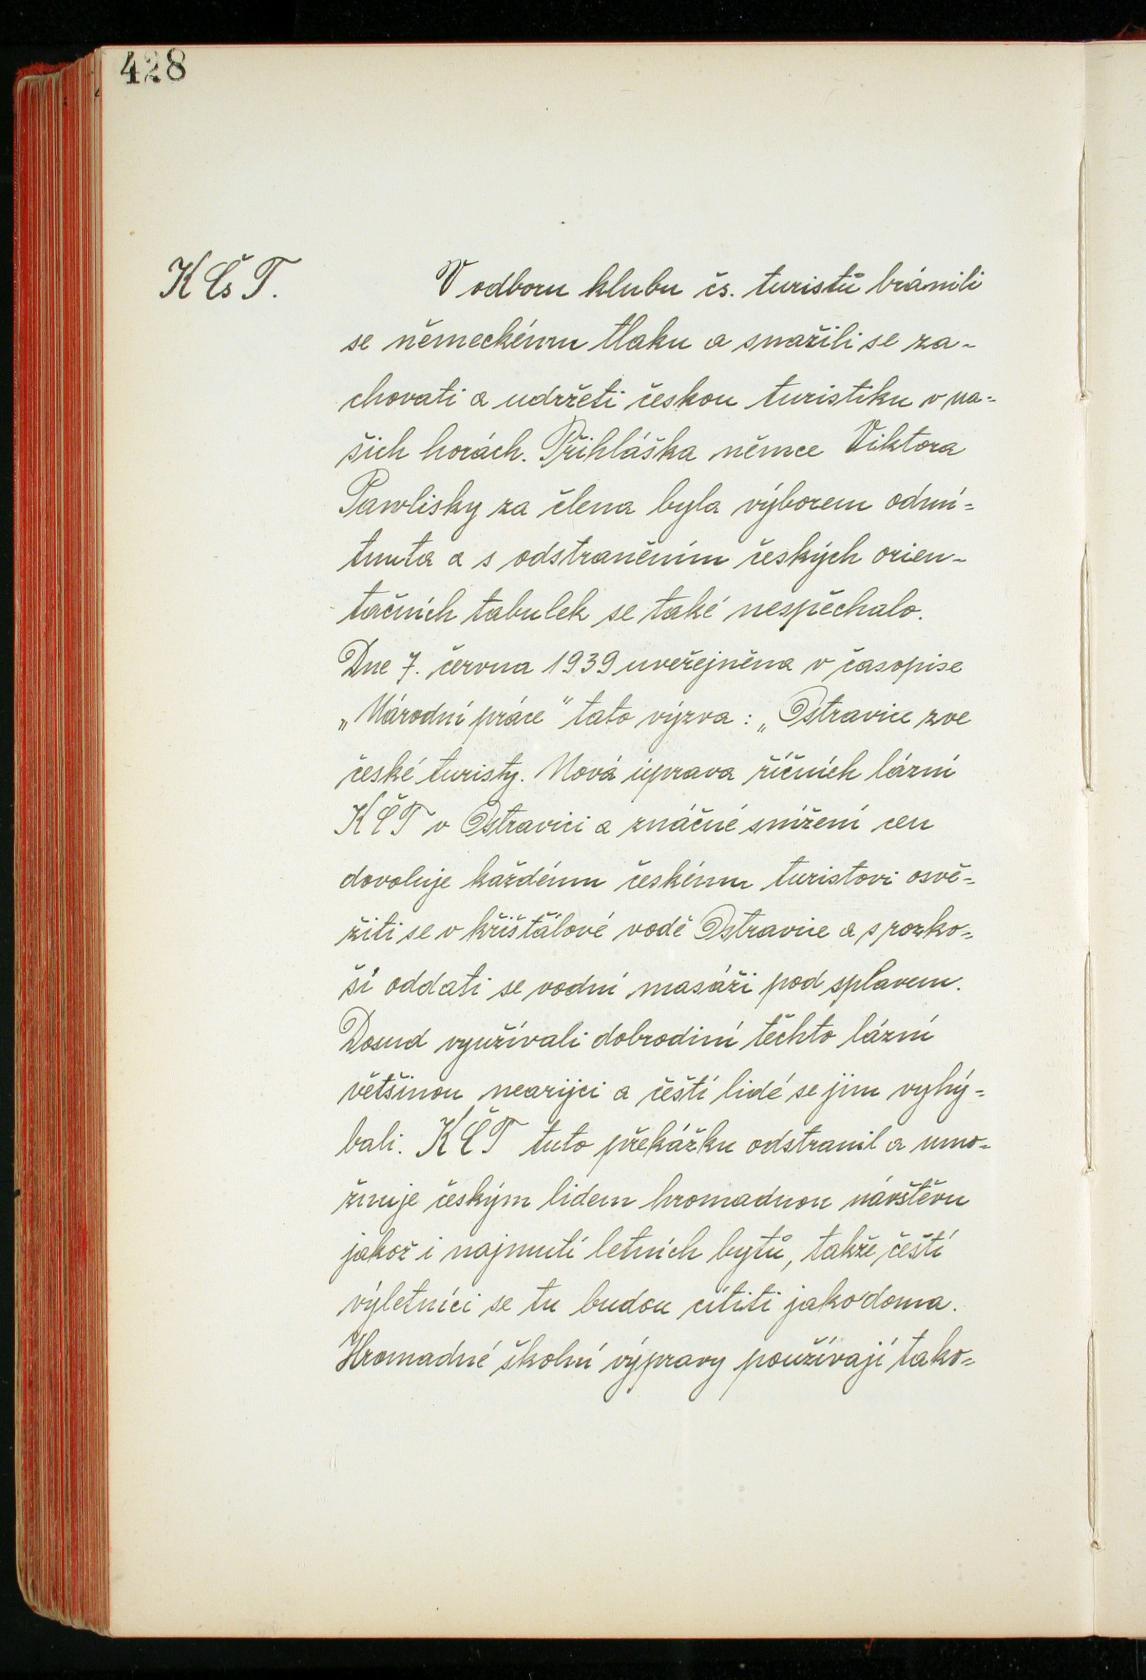 428
KČsT.
V odboru klubu čs. turistů bránili
se německému tlaku a snažili se za-
chovati a udržeti českou turistiku v na-
šich horách. Přihláška němce Viktora
Pawlisky za člena byla výborem odmí-
tnuta a s odstraněním českých orien-
tačních tabulek se také nespěchalo.
Dne 7. června 1939 uveřejněna v časopise
„Národní práce" tato výzva: „Ostravice zve
české turisty. Nová úprava říčních lázní
KČT v Ostravici a značné snížení cen
dovoluje každému českému turistovi osvě-
žiti se v křišťálové vodě Ostravice a s rozko-
ší oddati se vodní masáži pod splavem.
Dosud využívali dobrodiní těchto lázní
většinou nearijci a čeští lidé se jim vyhý-
bali. KČT tuto překážku odstranil a umo-
žnuje českým lidem hromadnou návštěvu
jakož i najmutí letních bytů, takže čeští
výletníci se tu budou cítiti jako doma.
Hromadné školní výpravy používají tako-